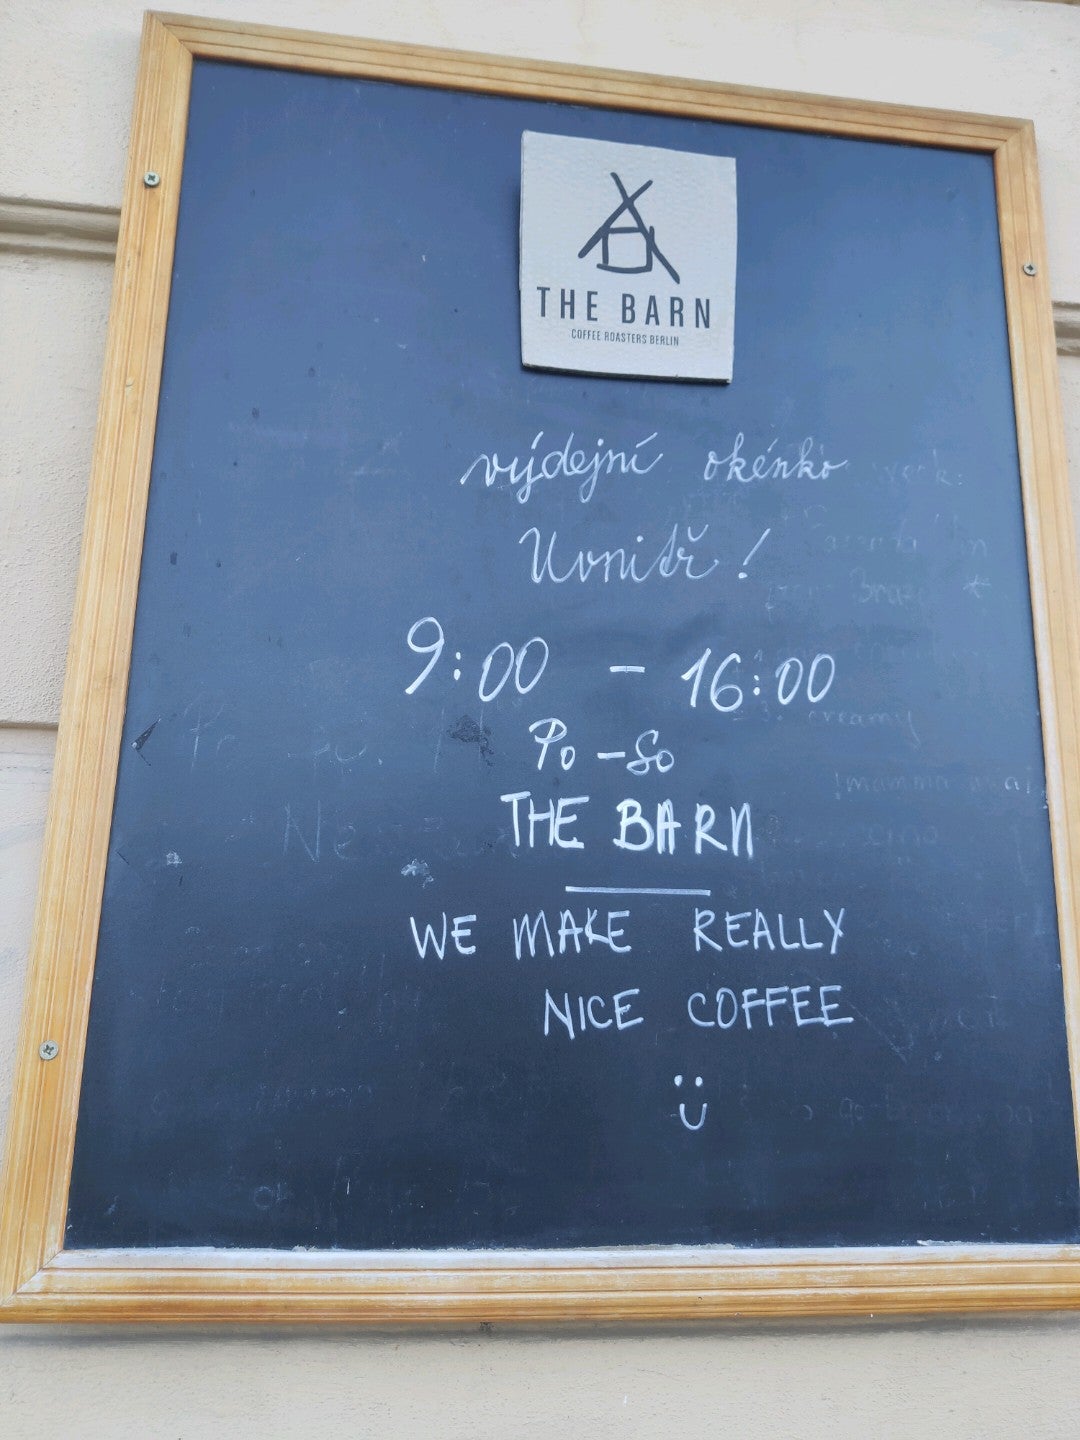 THE BARN
COFFEE ROASTERS BERLIN
výdejní okénko
Uvnitř!
9:00 - 16:00
Po - So
THE BARN
WE MAKE REALLY
NICE COFFEE
creamy